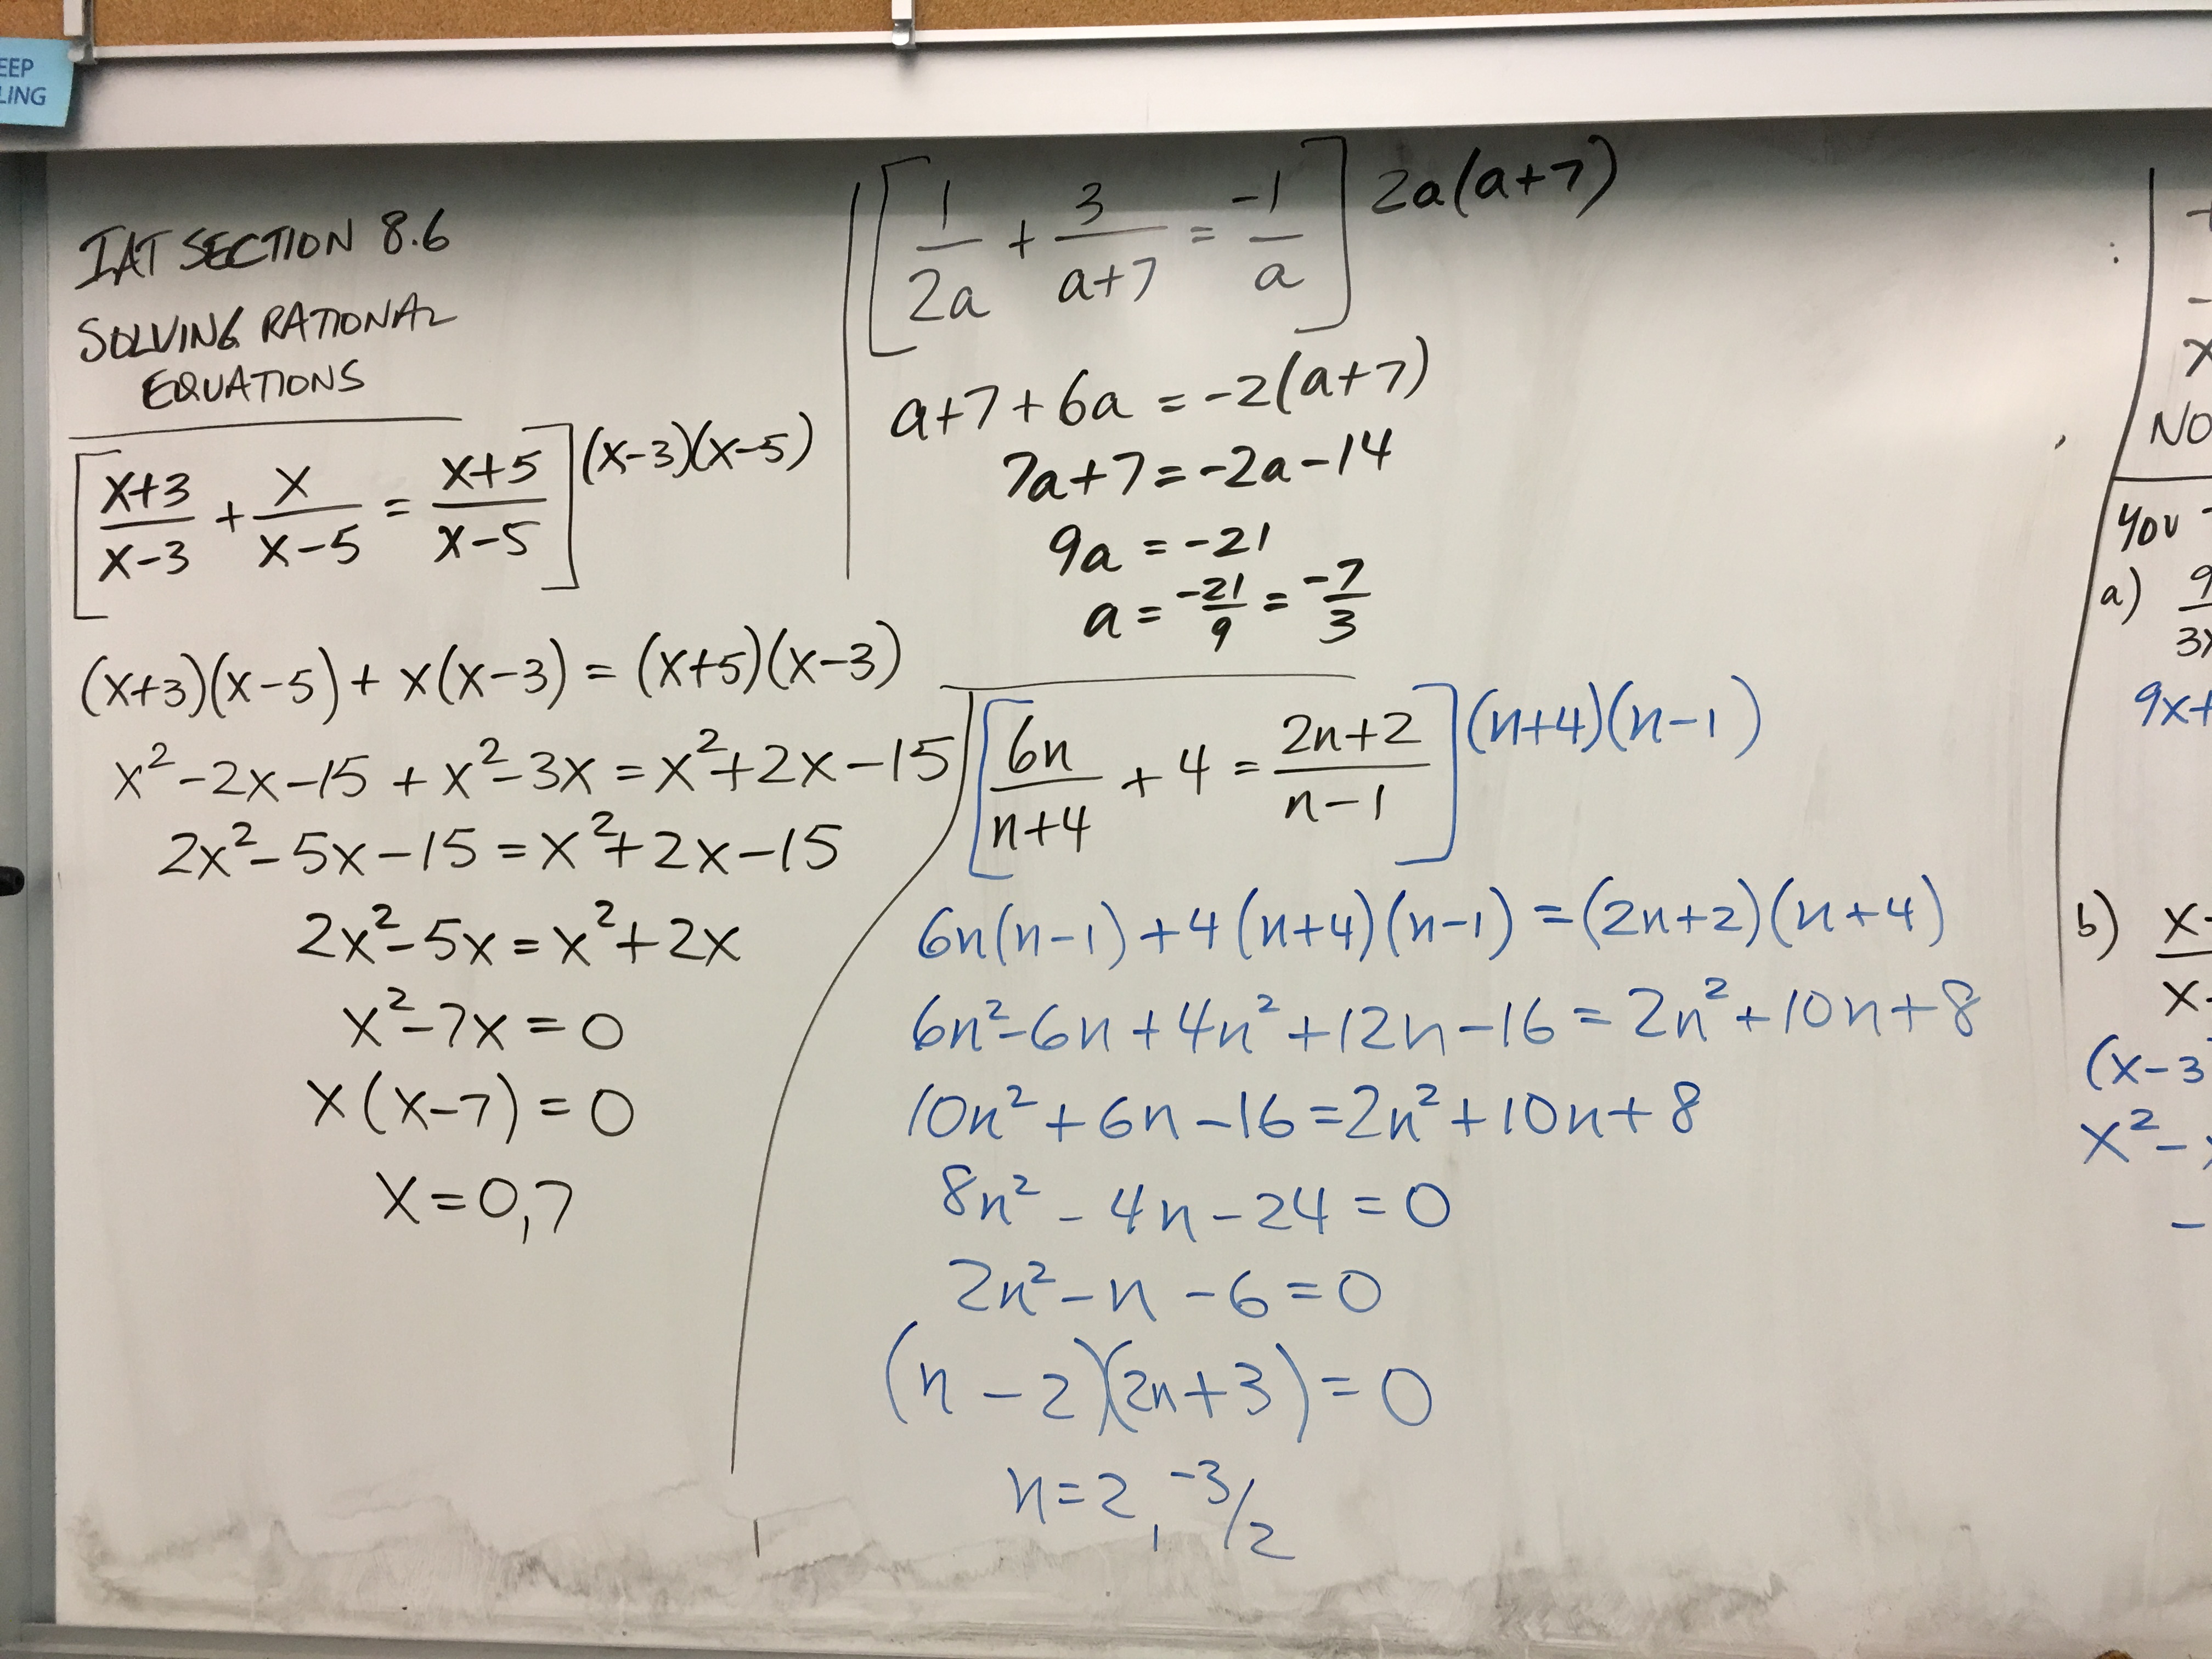 EEP
LING
IAT SECTION 8.6
SOLVING RATIONAL
EQUATIONS
[(x+3)/(x-3) + x/(x-5) = (x+5)/(x-5)] (x-3)(x-5)
(x+3)(x-5) + x(x-3) = (x+5)(x-3)
x²-2x-15 + x²-3x = x²+2x-15
2x²-5x-15 = x²+2x-15
2x²-5x = x²+2x
x²-7x = 0
x(x-7) = 0
x=0,7
[1/2a + 3/(a+7) = -1/a] 2a(a+7)
a+7+6a = -2(a+7)
7a+7 = -2a-14
9a = -21
a = -21/9 = -7/3
[6n/(n+4) + 4 = (2n+2)/(n-1)] (n+4)(n-1)
6n(n-1)+4(n+4)(n-1) = (2n+2)(n+4)
6n²-6n+4n²+12n-16 = 2n²+10n+8
10n²+6n-16=2n²+10n+8
8n²-4n-24=0
2n²-n-6=0
(n-2)(2n+3)=0
n=2, -3/2
NO
YOU
a) 9
3x
9x+
b) x-
x-
(x-3
x²-